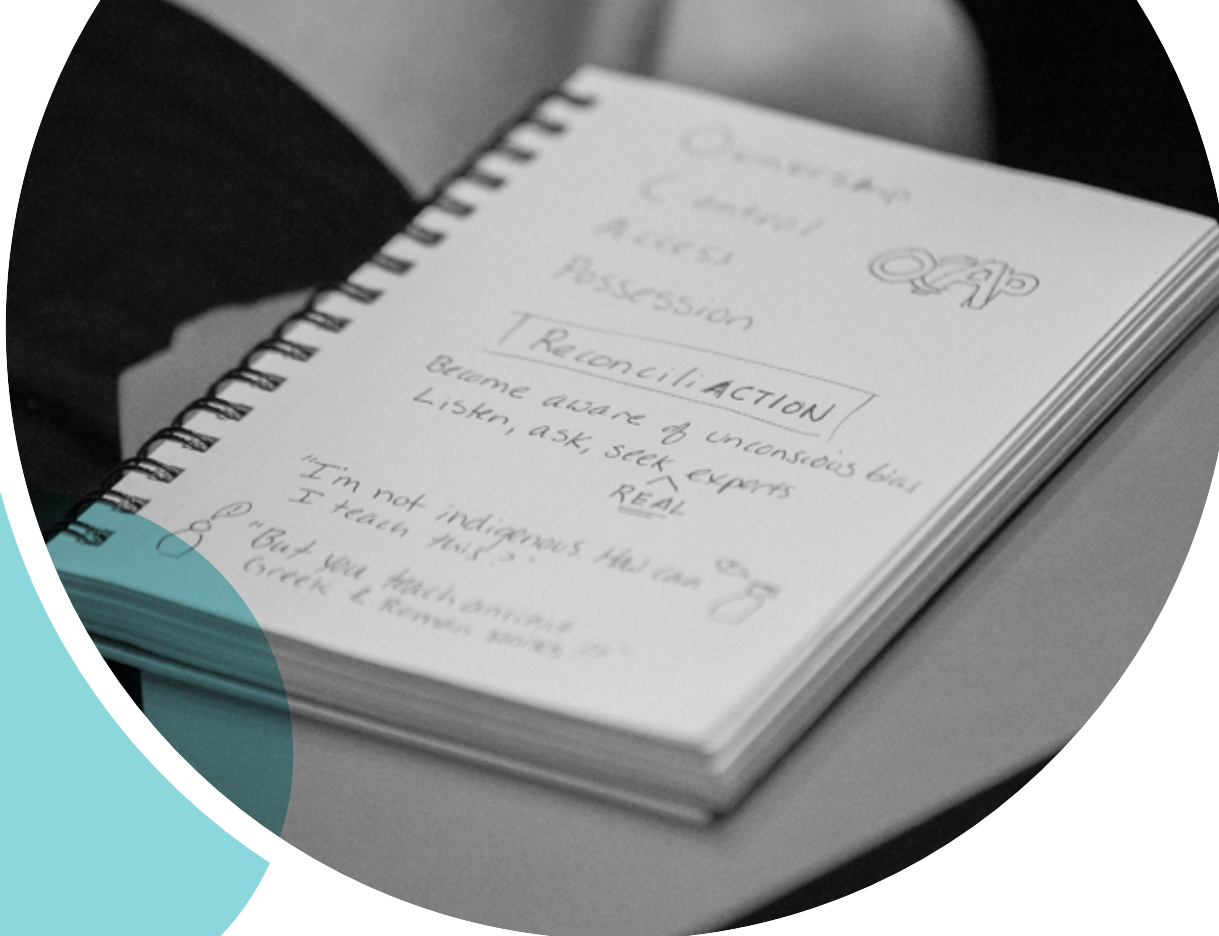 Ownership
Control
Access
Possession
OCAP
ReconciliACTION
Become aware of unconscious bias
Listen, ask, seek ^ experts
REAL
"I'm not indigenous How can
I teach this?"
"But you teach ancient
Greek & Roman works !?"